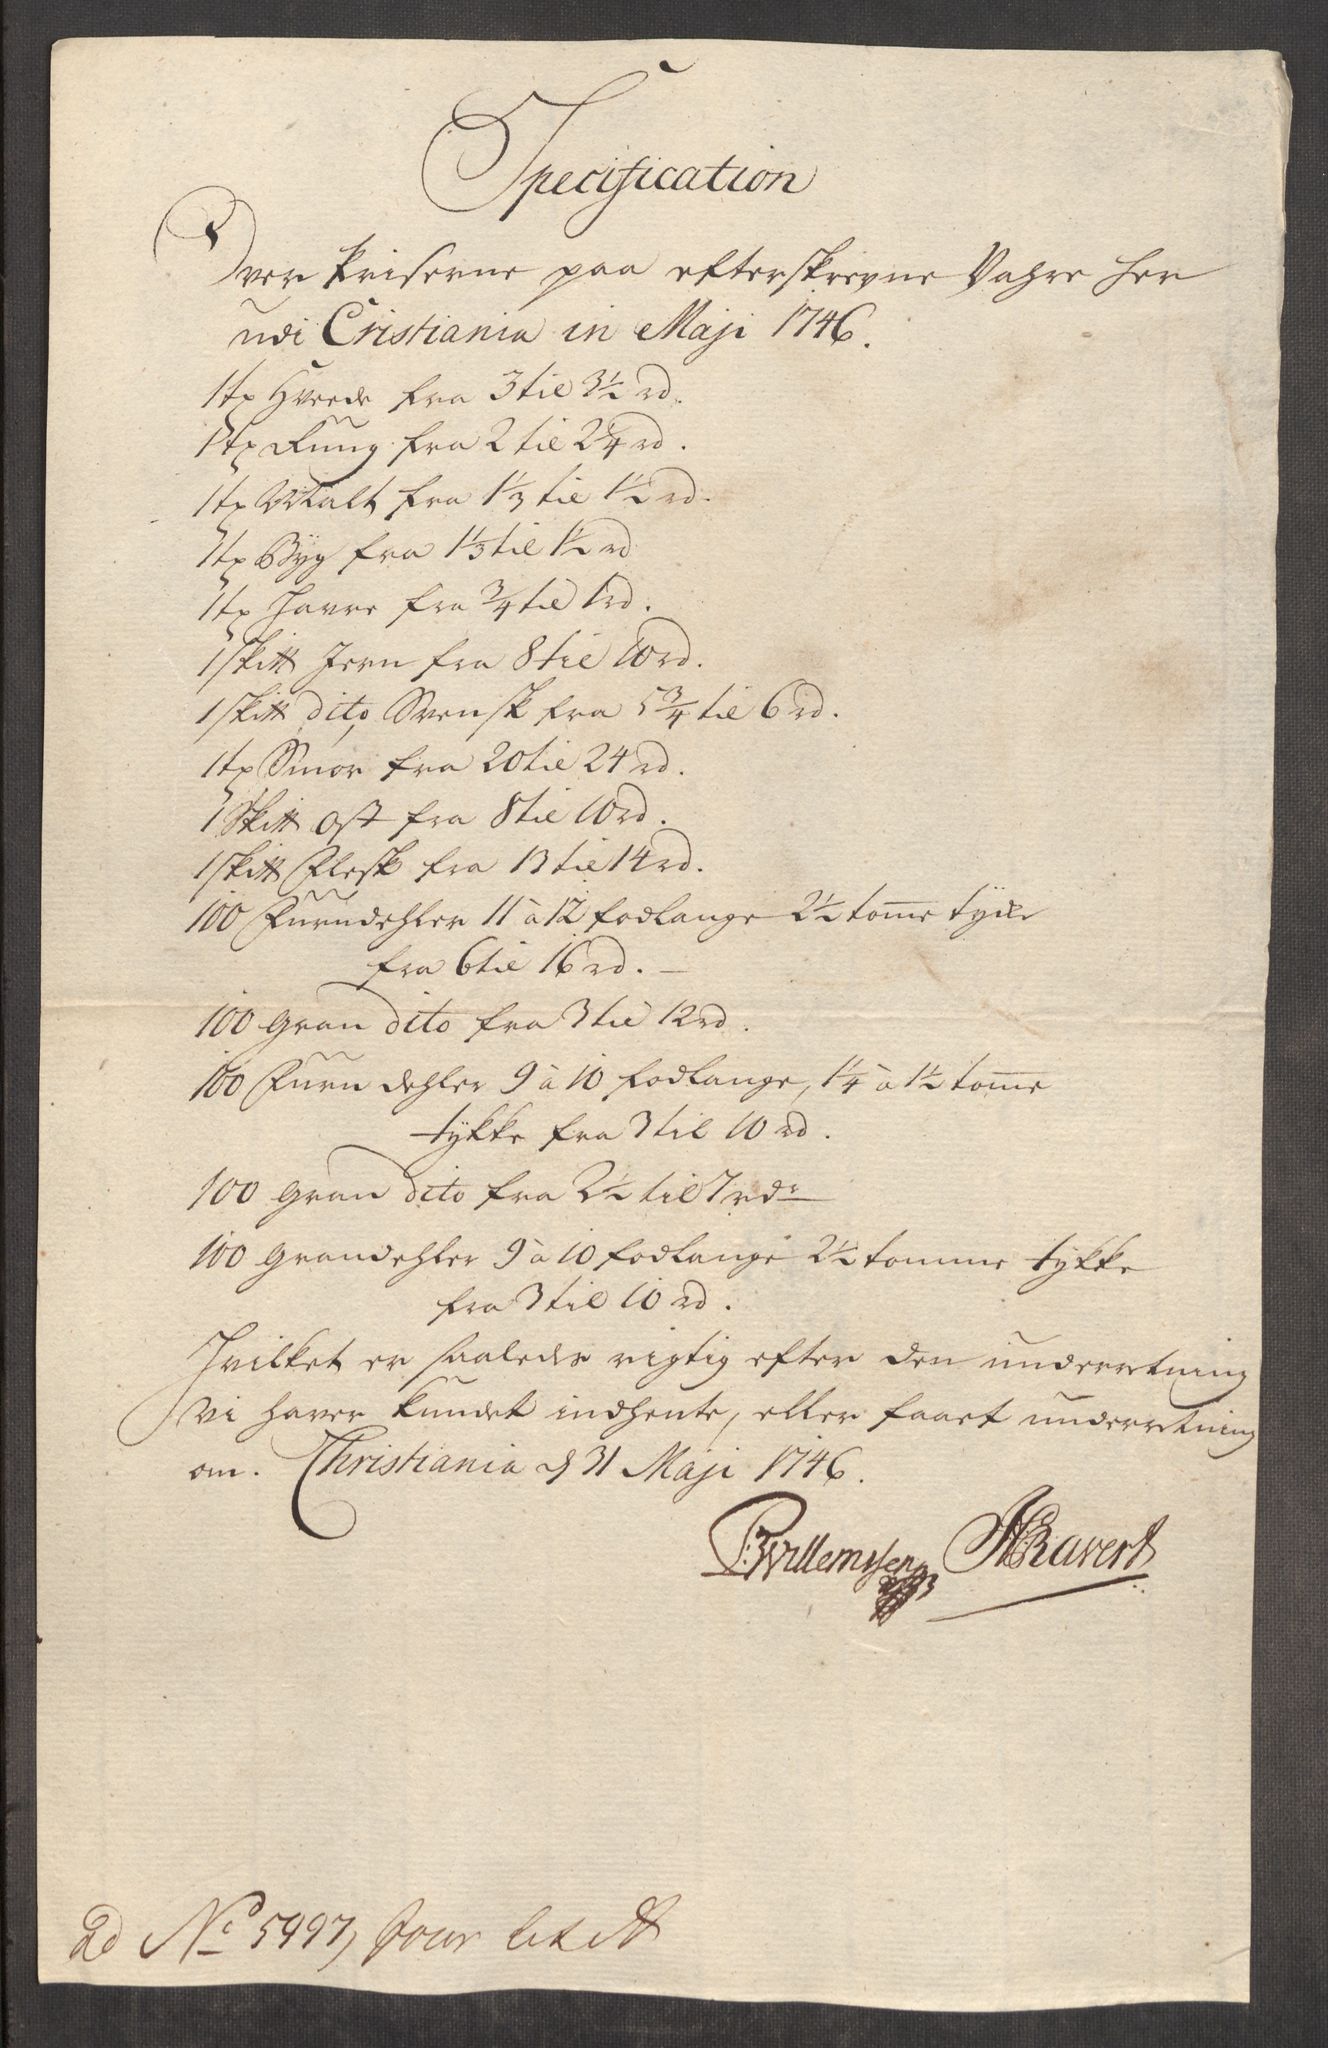 Specification
Over Priserne paa efterskrevne Vahre her
udi Cristiania in Maji 1746.
1 tr Hvede fra 3 til 3½ rd.
1 tr Rug fra 2 til 2¼ rd.
1 tr Malt fra 1⅓ til 1½ rd.
1 tr Byg fra 1⅓ til 1½ rd
1 tr Havre fra ¾ til 1 rd.
1 sk℔ Jern fra 8 til 10 rd.
1 sk℔ dito, Svensk fra 5¾ til 6 rd.
1 tr Smør fra 20 til 24 rd.
1 Sk℔ Ost fra 8 til 10 rd.
1 sk℔ Flesk fra 13 til 14 rd.
100 Furudehler 11 à 12 fodlange 2½ tom̄e tyke
fra 6 til 16 rd. —
100 Gran dito fra 3 til 12 rd.
100 Furu dehler 9 à 10 fodlange, 1¼ à 1½ tom̄e
tykke fra 3 til 10 rd.
100 Gran dito fra 2½ til 7 rdr
100 Grandehler 9 à 10 fodlange 2½ tomme tykke
fra 3 til 10 rd.
Hvilket er saaledes rigtig efter den underretning
vi haver kundet indhente, eller faaet underretning
om. Christiania d 31 Maji 1746.
Willemsen Ravert
No 5997,